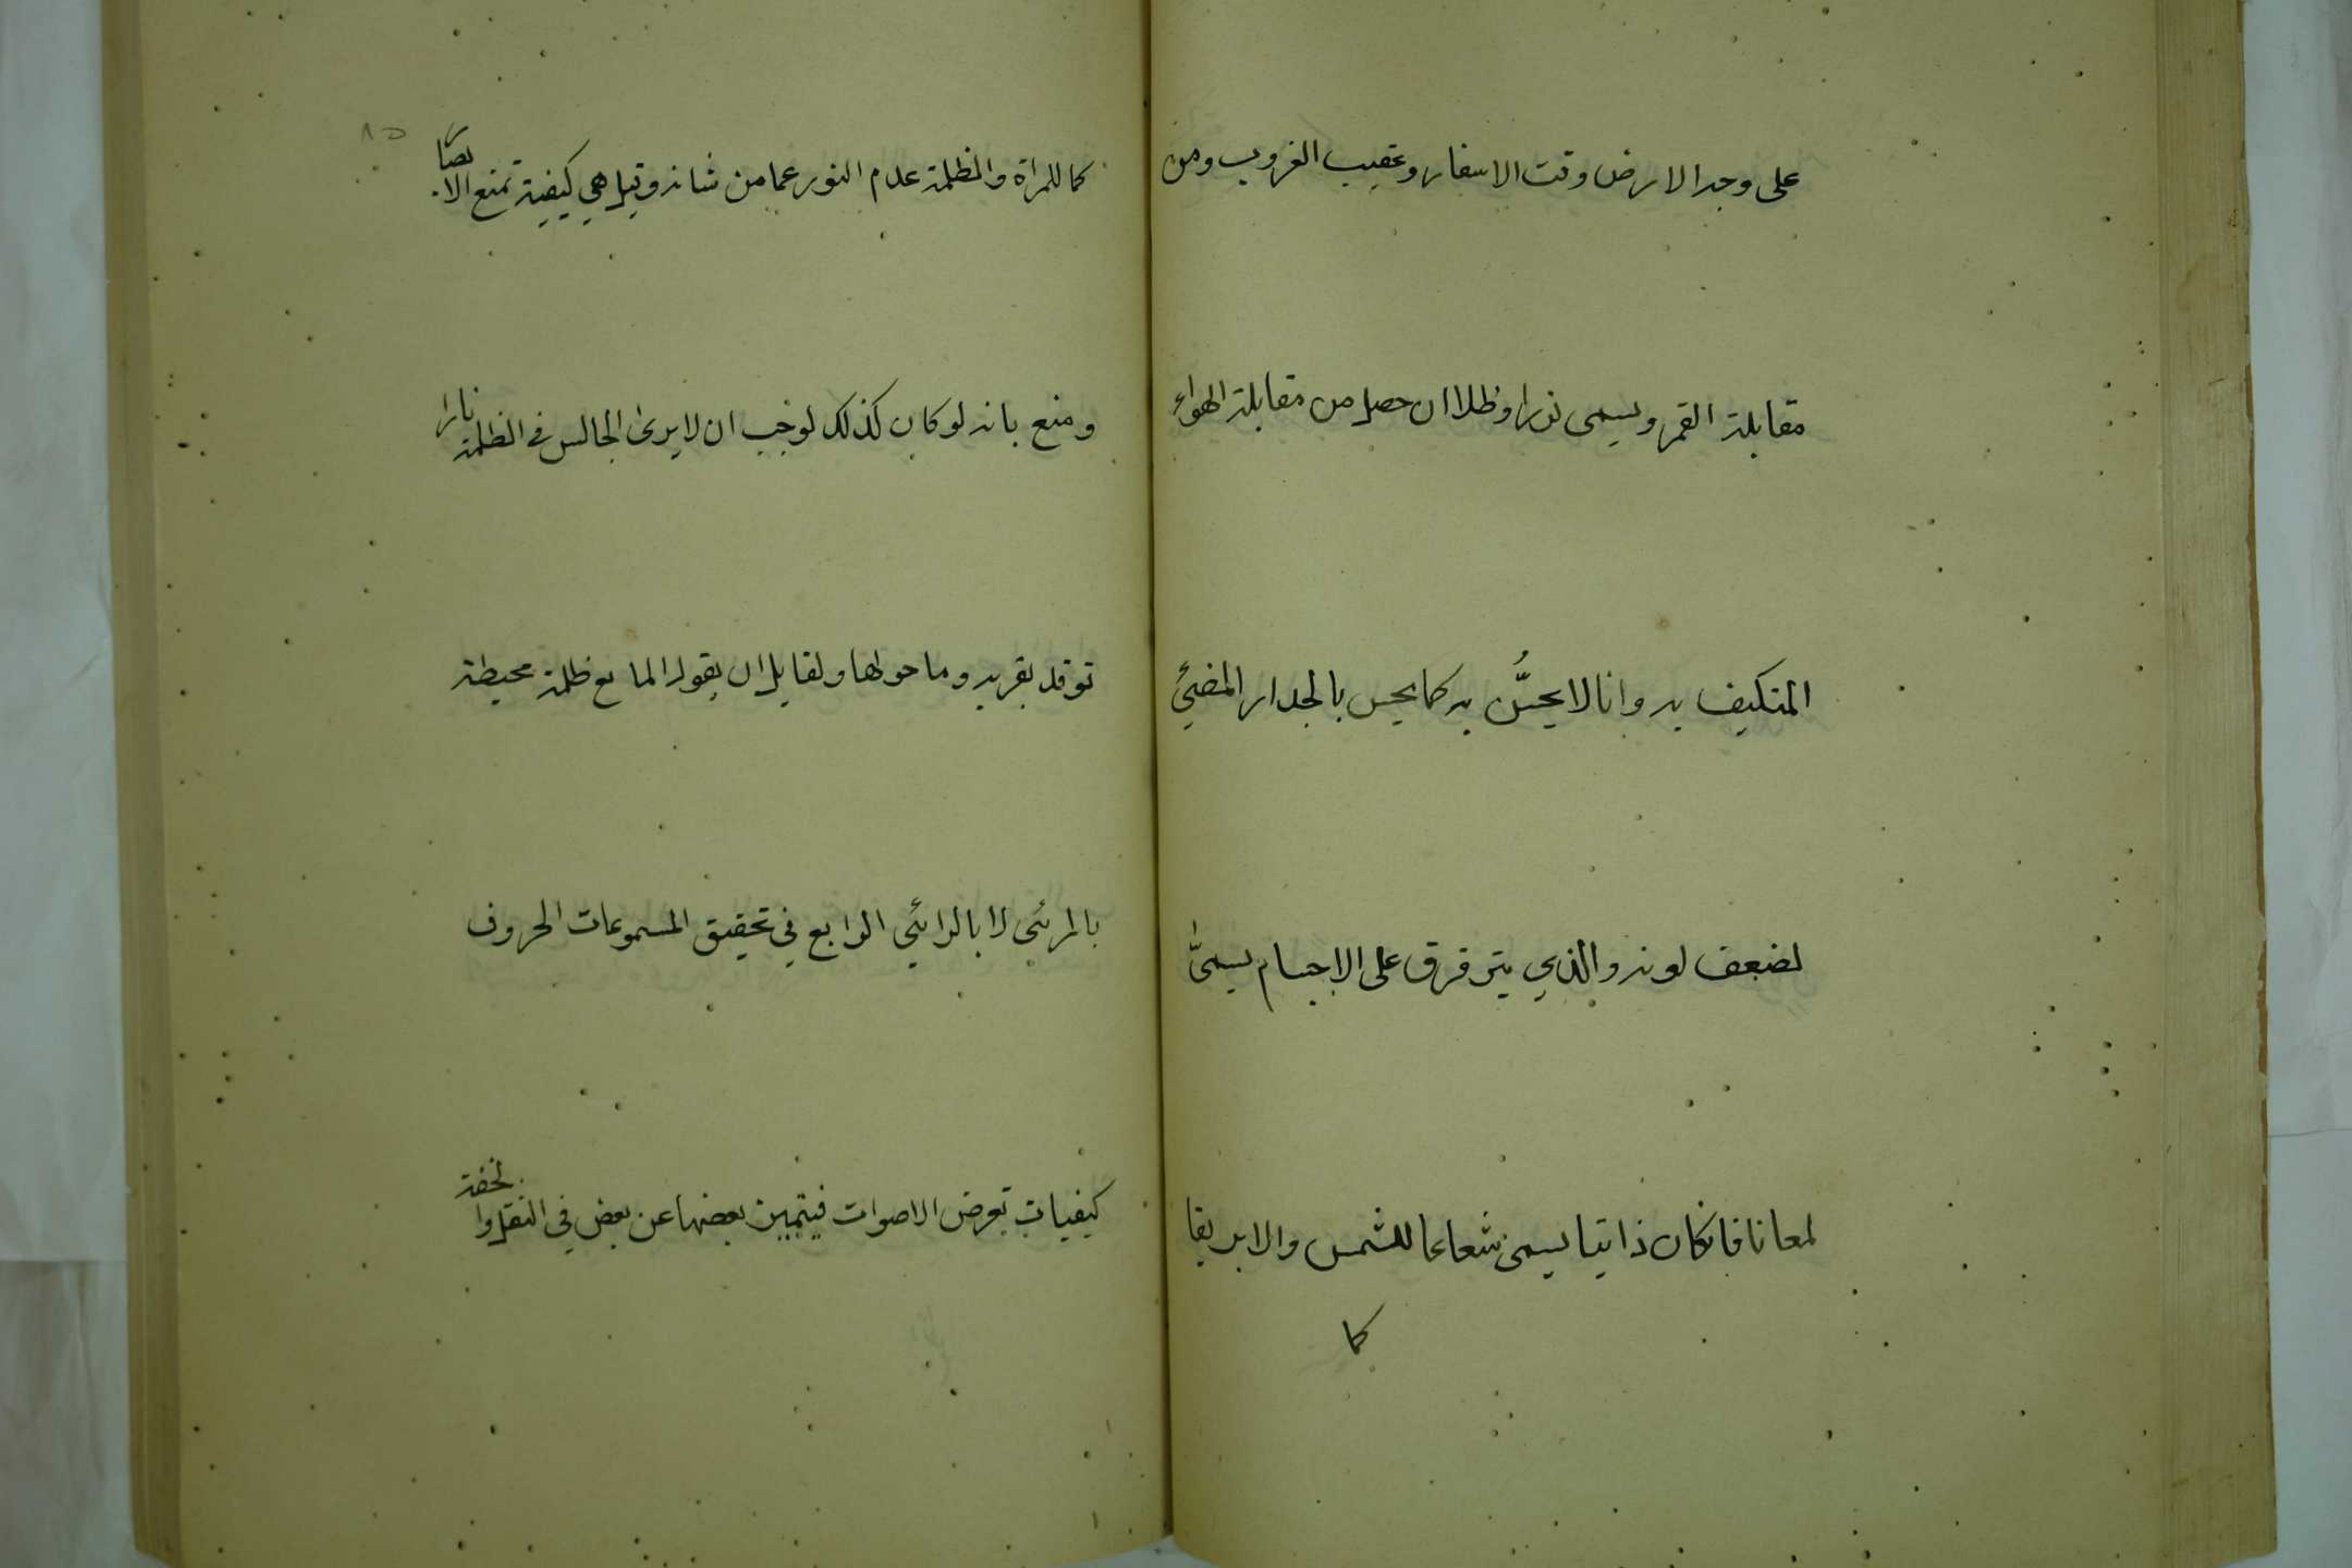 على وجه الارض وقت الاسفار وعقيب الغروب ومن
مقابلة القمر ويسمى نورا وظلا ان حصل من مقابلة الهواء
المتكيف به وانا لا يحسُّ به كما يحس بالجدار المضيئ
لضعف لونه والذي يترقرق على الاجسام يسمىّ
لمعانا فانكان ذاتيا يسمى شعاعا للشمس والا بريقا
كما
٨٥
كما للمراة والظلمة عدم النور عما من شانه وقيل هي كيفية تمنع الابصار
ومنع بانه لو كان كذلك لوجب ان لا يرى الجالس في الظلمة نارا
توقد بقربه وما حولها ولقايل ان يقول المانع ظلمة محيطة
بالمرئي لا بالرائي الرابع في تحقيق المسموعات الحروف
كيفيات تعرض الاصوات فيتميز بعضها عن بعض في الثقل والخفة